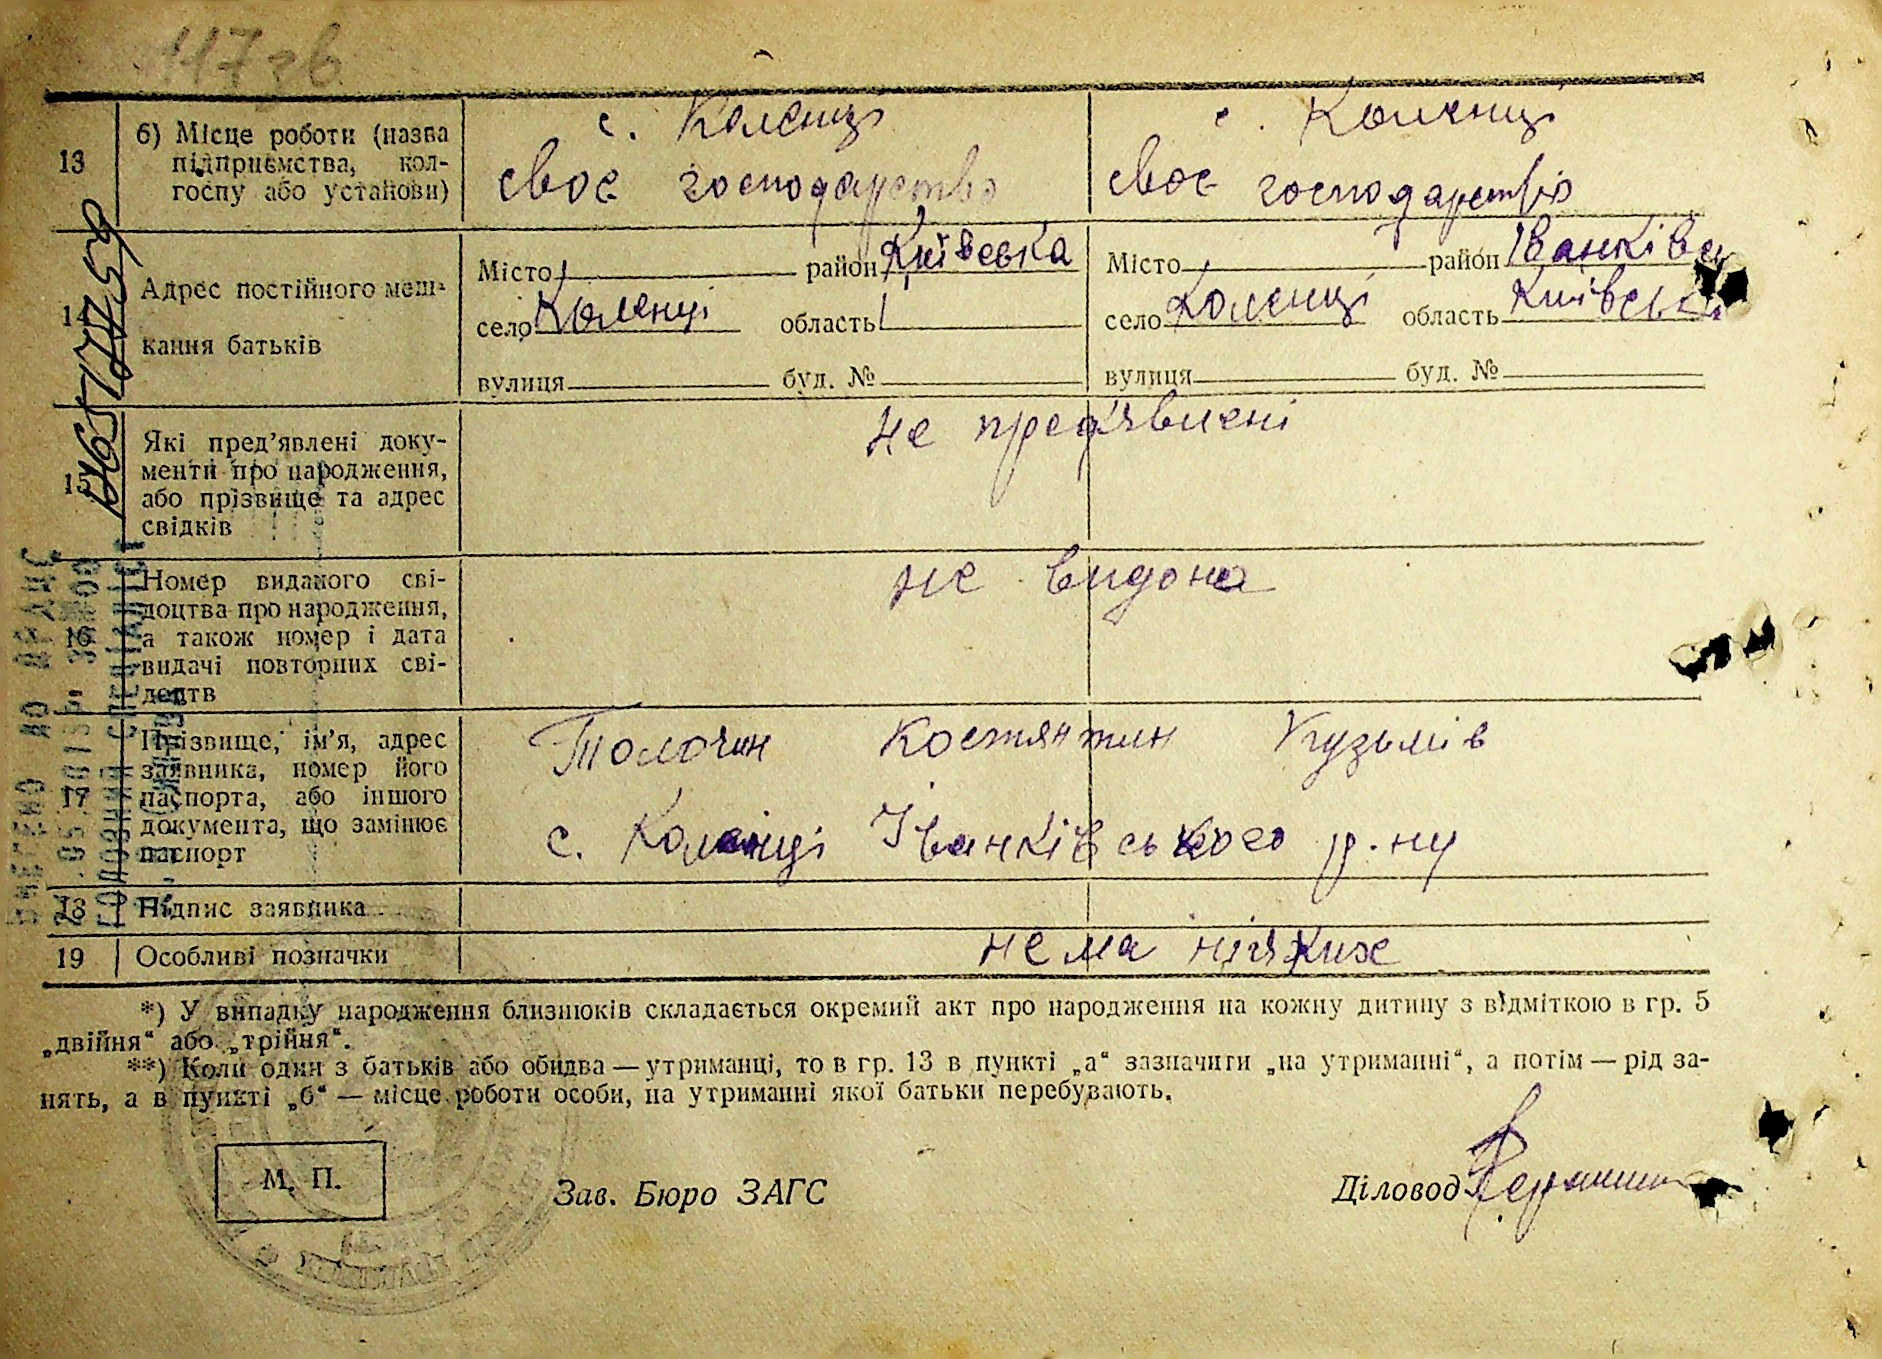 117зв
13 б) Місце роботи (назва підприємства, колгоспу або установи)
с. Коленці
своє господарство
с. Коленці
своє господарство
Адрес постійного мешкання батьків
Місто район Київська
село Коленці область
вулиця буд. №
Місто район Іванківськ
село Коленці область Київська
вулиця буд. №
Які пред'явлені документи про народження, або прізвище та адрес свідків
не предявлені
16 Номер виданого свідоцтва про народження, а також номер і дата видачі повторних свідоцтв
не видона
17 Прізвище, ім'я, адрес заявника, номер його паспорта, або іншого документа, що замінює паспорт
Толочин Костянтин Кузьмів
с. Коленці Іванківського р-ну
18 Підпис заявника
19 Особливі позначки
нема ніяких
*) У випадку народження близнюків складається окремий акт про народження на кожну дитину з відміткою в гр. 5
„двійня“ або „трійня“.
**) Коли один з батьків або обидва — утриманці, то в гр. 13 в пункті „а“ зазначити „на утриманні“, а потім — рід за-
нять, а в пункті „б“ — місце роботи особи, на утриманні якої батьки перебувають.
М. П.
Зав. Бюро ЗАГС
Діловод